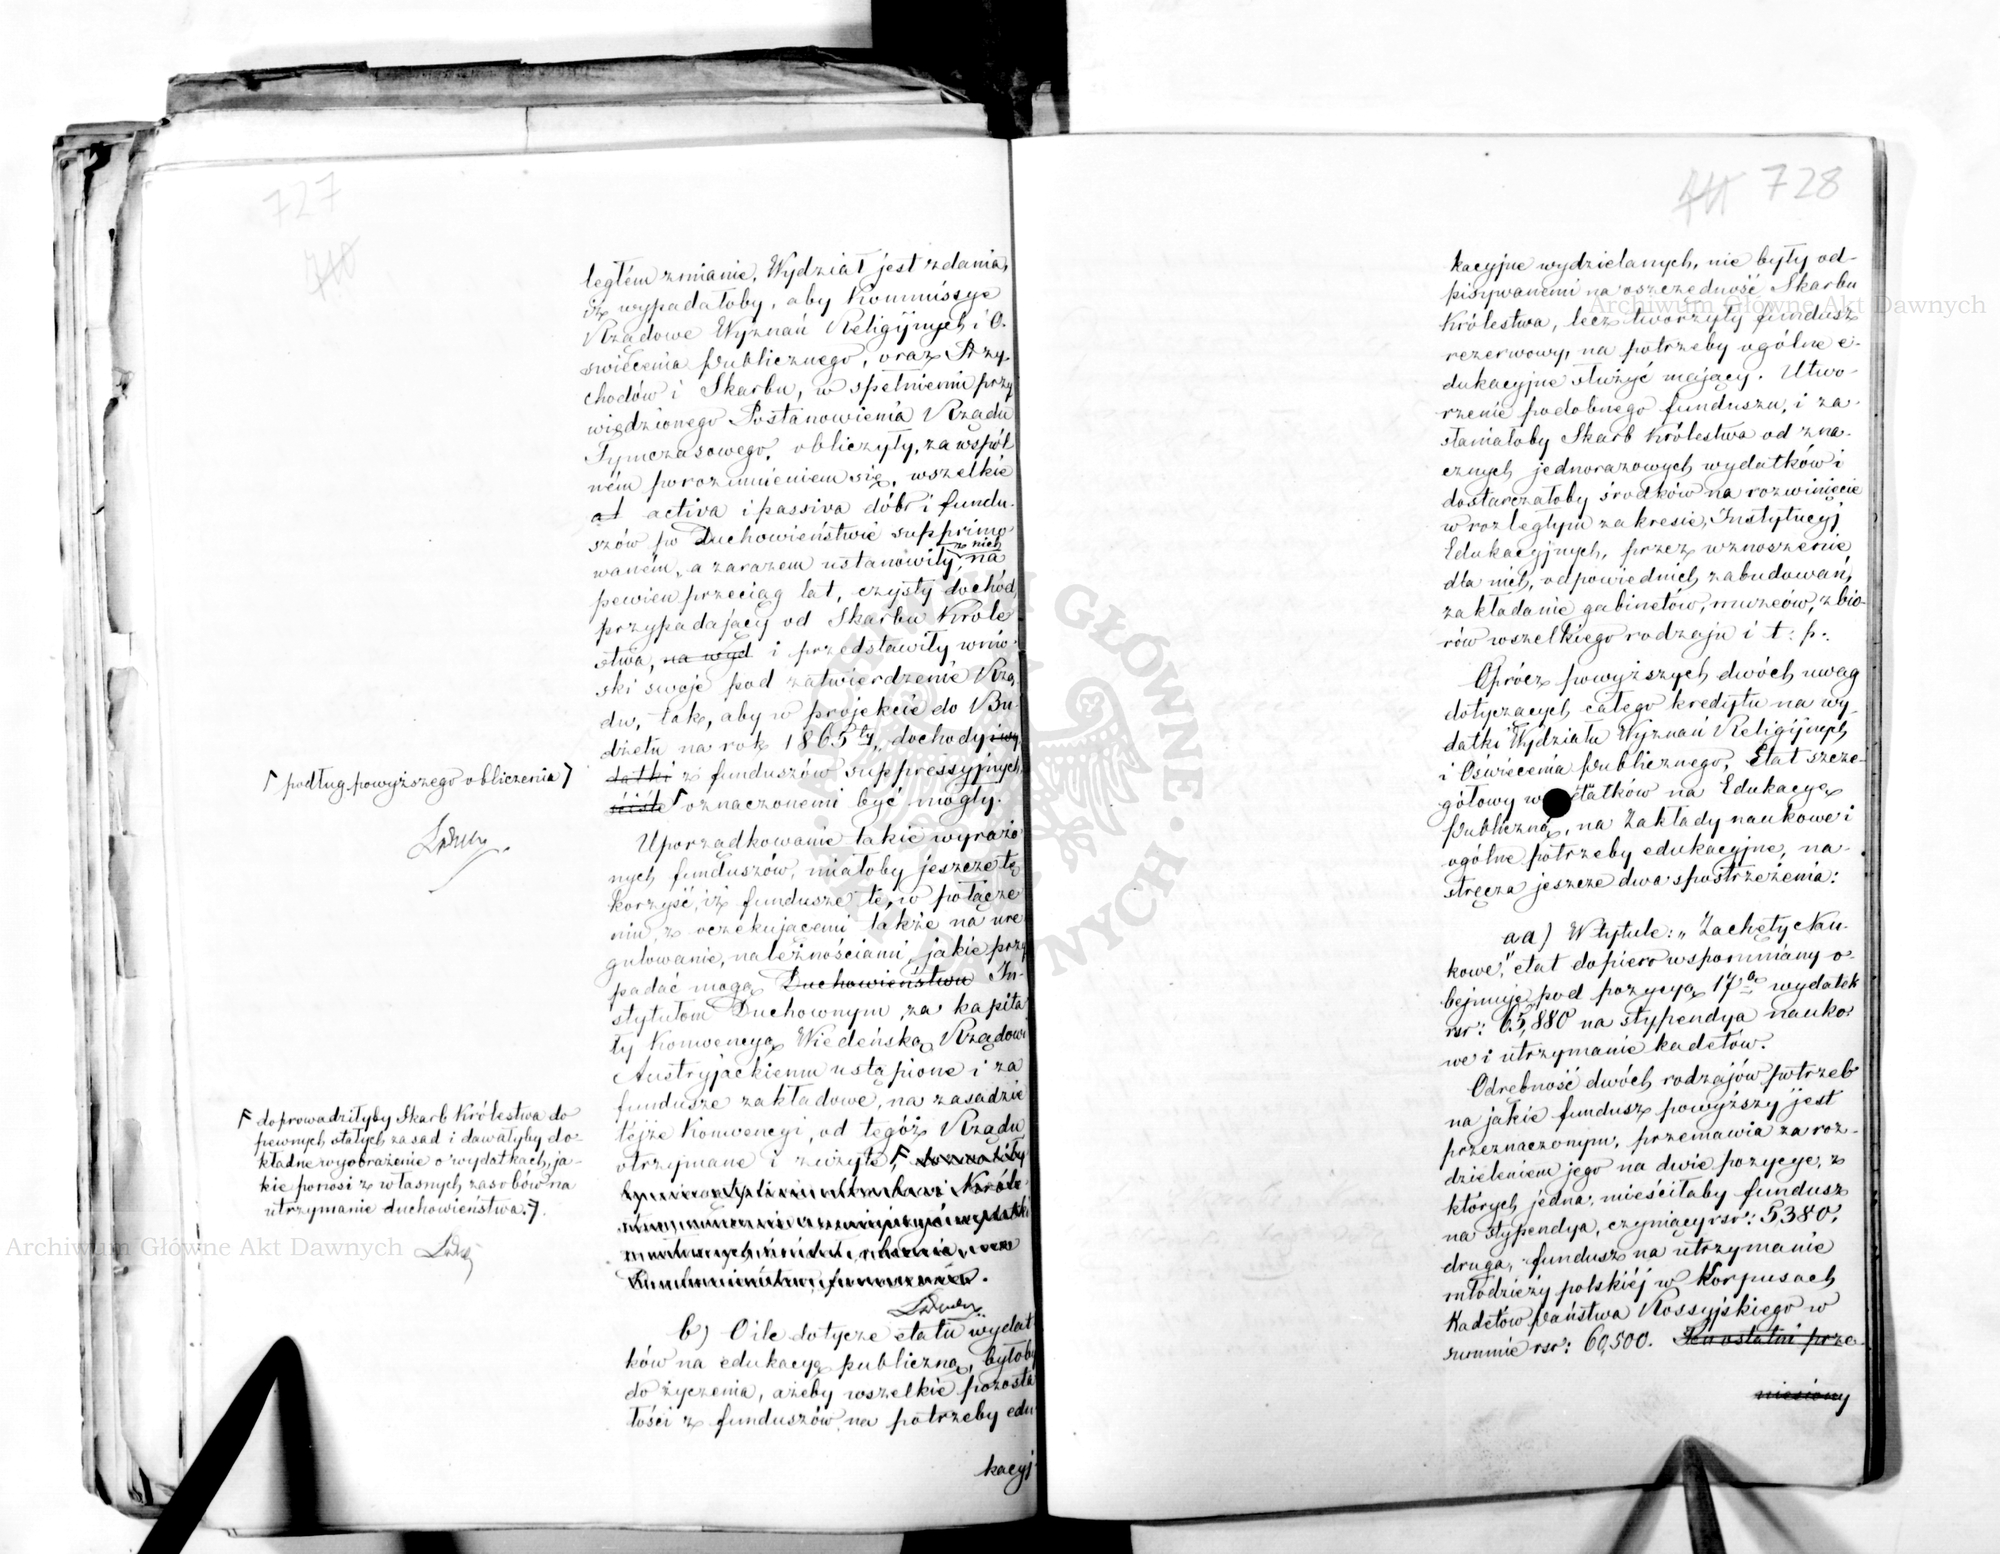 727
ległém zmianie, Wydział jest zdania,
iż wypadałoby, aby Kommissye
Rządowe Wyznań Religijnych i O-
świecenia Publicznego, oraz Przy-
chodów i Skarbu, w spełnieniu przy
wiedzionego Postanowienia Rządu
Tymczasowego, obliczyły, za wspól
ném porozumieniem się, wszelkie
at activa i passiva dóbr i fundu-
szów po Duchowieństwie supprimo
waném, a zarazem ustanowiły z nich na
pewien przeciąg lat, czysty dochód,
przypadający od Skarbu Króle-
stwa, na wyd i przedstawiły wnio-
ski swoje pod zatwierdzenie Rzą-
du, tak, aby w projekcie do Bu-
dżetu na rok 1865ty, dochody i wy
datki z funduszów suppressyjnych,
ściśle oznaczonemi być mogły.
podług powyższego obliczenia
Uporządkowanie takie wyrażo
nych funduszów, miałoby jeszcze tę
korzyść, iż fundusze te, w połącze
niu, z oczekującemi także na ure-
gulowanie, należnościami, jakie przy
padać mogą Duchowieństwu In-
stytutom Duchownym za kapita
ły Konwencyą Wiedeńską Rządowi
Austryjackiemu ustąpione i za
fundusze zakładowe, na zasadzie
tejże Konwencyi, od tegóż Rządu
otrzymane i zużyte,
doprowadziłyby Skarb Królestwa do
pewnych stałych zasad i dawałyby do-
kładne wyobrażenie o wydatkach, ja-
kie ponosi z własnych zasobów na
utrzymanie duchowieństwa.
b) O ile dotycze etatu wydat
ków na edukacyą publiczną, byłoby
do życzenia, ażeby wszelkie pozosta
łości z funduszów na potrzeby edu
kacyj-
728
kacyjne wydzielanych, nie były od-
pisywanemi na oszczędność Skarbu
Królestwa, lecz tworzyły fundusz
rezerwowy, na potrzeby ogólne e-
dukacyjne służyć mający. Utwo-
rzenie podobnego funduszu, i za-
słaniałoby Skarb Królestwa od zna-
cznych jednorazowych wydatków i
dostarczałoby środków na rozwinięcie
w rozległym zakresie, Instytucyj
Edukacyjnych, przez wznoszenie
dla nich, odpowiednich zabudowań,
zakładanie gabinetów, muzeów, zbio-
rów wszelkiego rodzaju i t: p:.
Oprócz powyższych dwóch uwag
dotyczących całego kredytu na wy-
datki Wydziału Wyznań Religijnych
i Oświecenia Publicznego, Etat szcze-
gółowy wydatków na Edukacyą
Publiczną, na Zakłady naukowe i
ogólne potrzeby edukacyjne, na-
stręcza jeszcze dwa spostrzeżenia:
aa) W tytule: „Zachęty Nau-
kowe," etat dopiero wspomniany o-
bejmuje pod pozycyą 17ą wydatek
rsr: 65,880 na stypendya nauko-
we i utrzymanie kadetów.
Odrębność dwóch rodzajów potrzeb
na jakie fundusz powyższy jest
przeznaczonym, przemawia za roz-
dzieleniem jego na dwie pozycye, z
których jedna, mieściłaby fundusz
na stypendya, czyniący rsr: 5,380,
druga, fundusz na utrzymanie
młodzieży polskiéj w Korpusach
Kadetów Państwa Rossyjskiego w
summie rsr: 60,500. Ten ostatni prze-
niesiony
Archiwum Główne Akt Dawnych
Archiwum Główne Akt Dawnych
ARCHIWUM GŁÓWNE AKT DAWNYCH